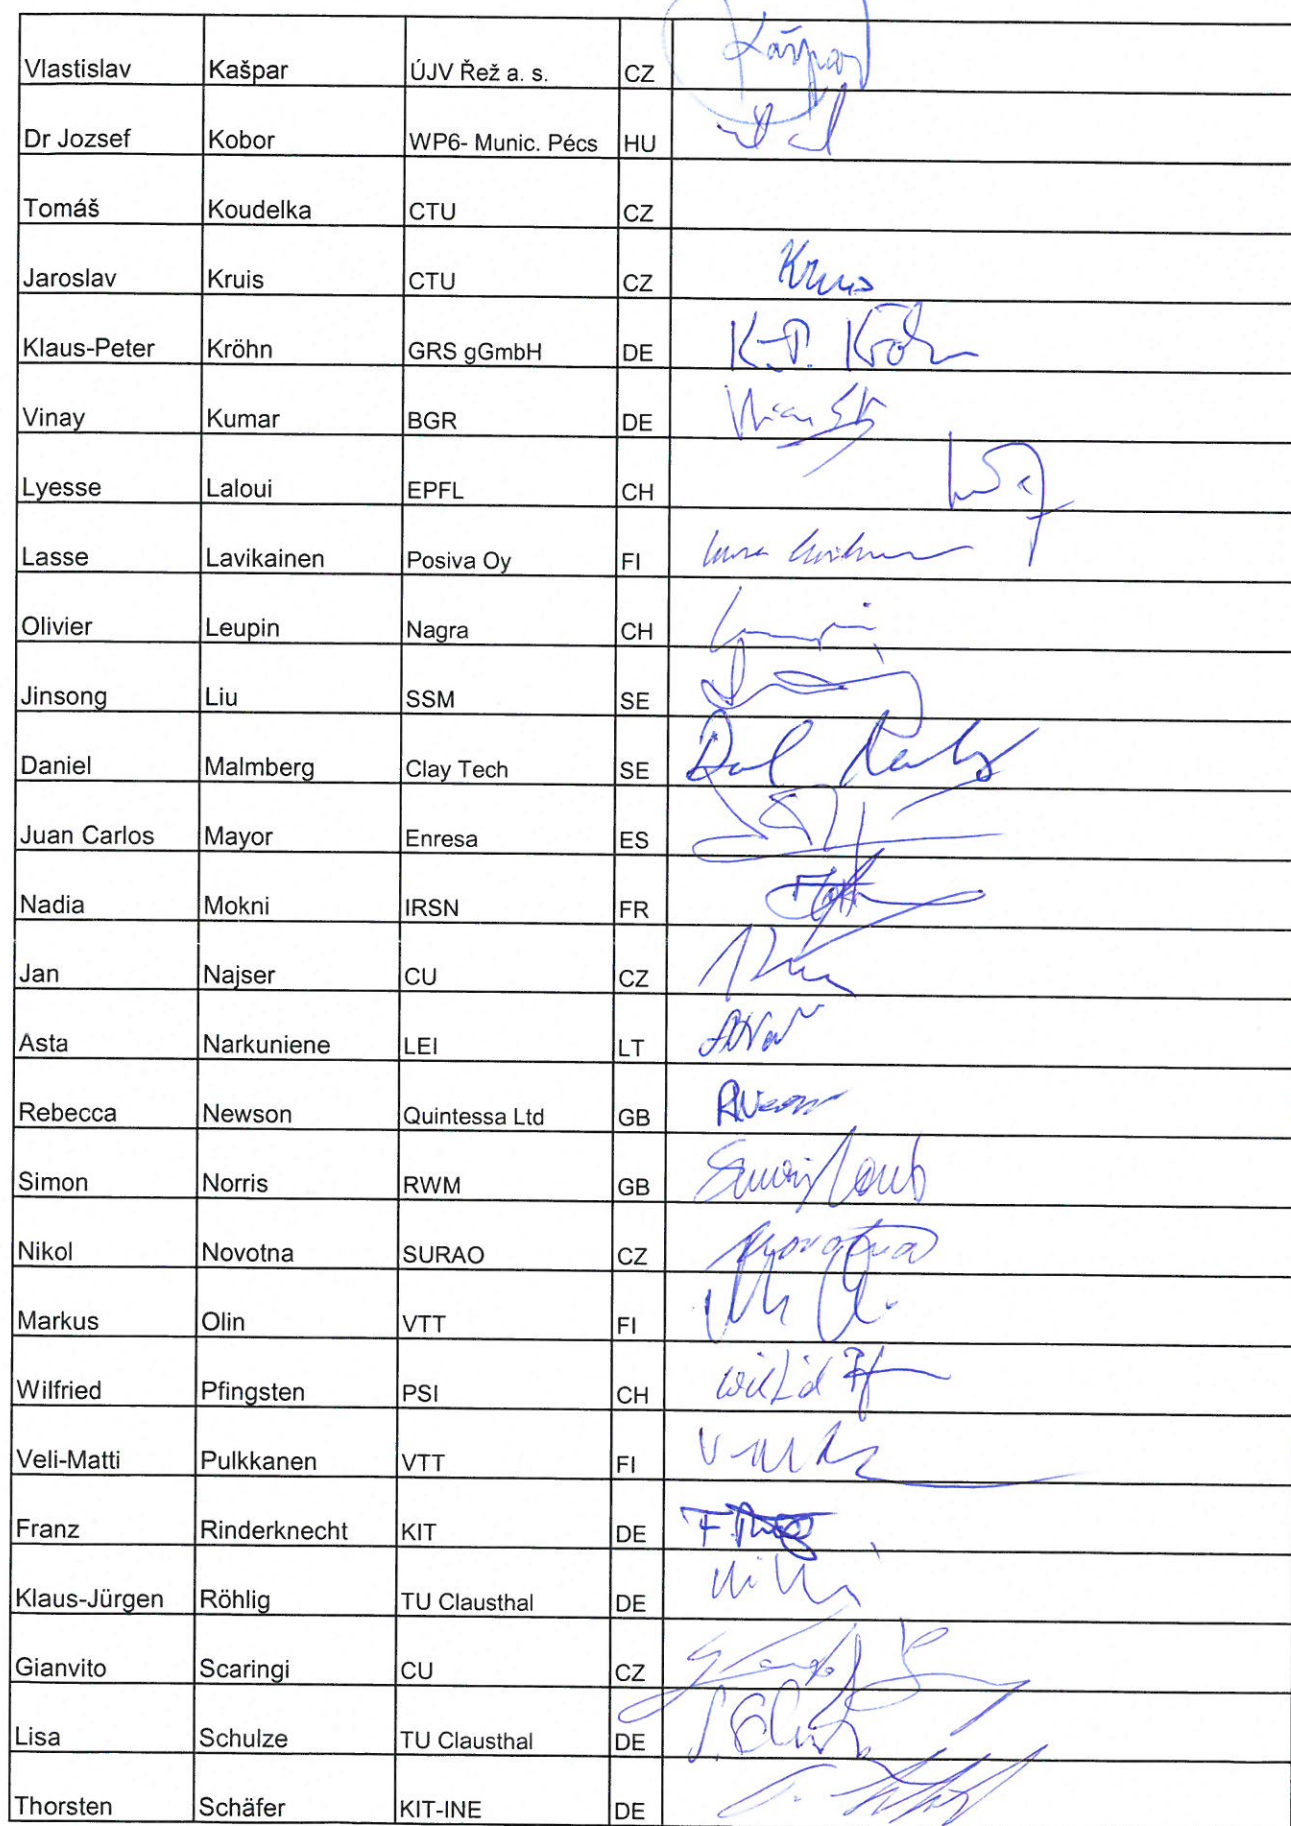 Vlastislav Kašpar ÚJV Řež a. s. CZ Kašpar
Dr Jozsef Kobor WP6- Munic. Pécs HU
Tomáš Koudelka CTU CZ
Jaroslav Kruis CTU CZ Kruis
Klaus-Peter Kröhn GRS gGmbH DE K.-P. Kröhn
Vinay Kumar BGR DE
Lyesse Laloui EPFL CH
Lasse Lavikainen Posiva Oy FI
Olivier Leupin Nagra CH
Jinsong Liu SSM SE
Daniel Malmberg Clay Tech SE
Juan Carlos Mayor Enresa ES
Nadia Mokni IRSN FR
Jan Najser CU CZ
Asta Narkuniene LEI LT
Rebecca Newson Quintessa Ltd GB
Simon Norris RWM GB
Nikol Novotna SURAO CZ Novotna
Markus Olin VTT FI
Wilfried Pfingsten PSI CH
Veli-Matti Pulkkanen VTT FI
Franz Rinderknecht KIT DE
Klaus-Jürgen Röhlig TU Clausthal DE
Gianvito Scaringi CU CZ
Lisa Schulze TU Clausthal DE
Thorsten Schäfer KIT-INE DE